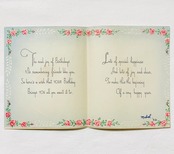 The real joy of Birthdays
Is remembering friends like you
So here's a wish that YOUR Birthday
Brings all you want it to
Lots of special happiness
And lots of joy and cheer
To make this the beginning
Of a very happy year